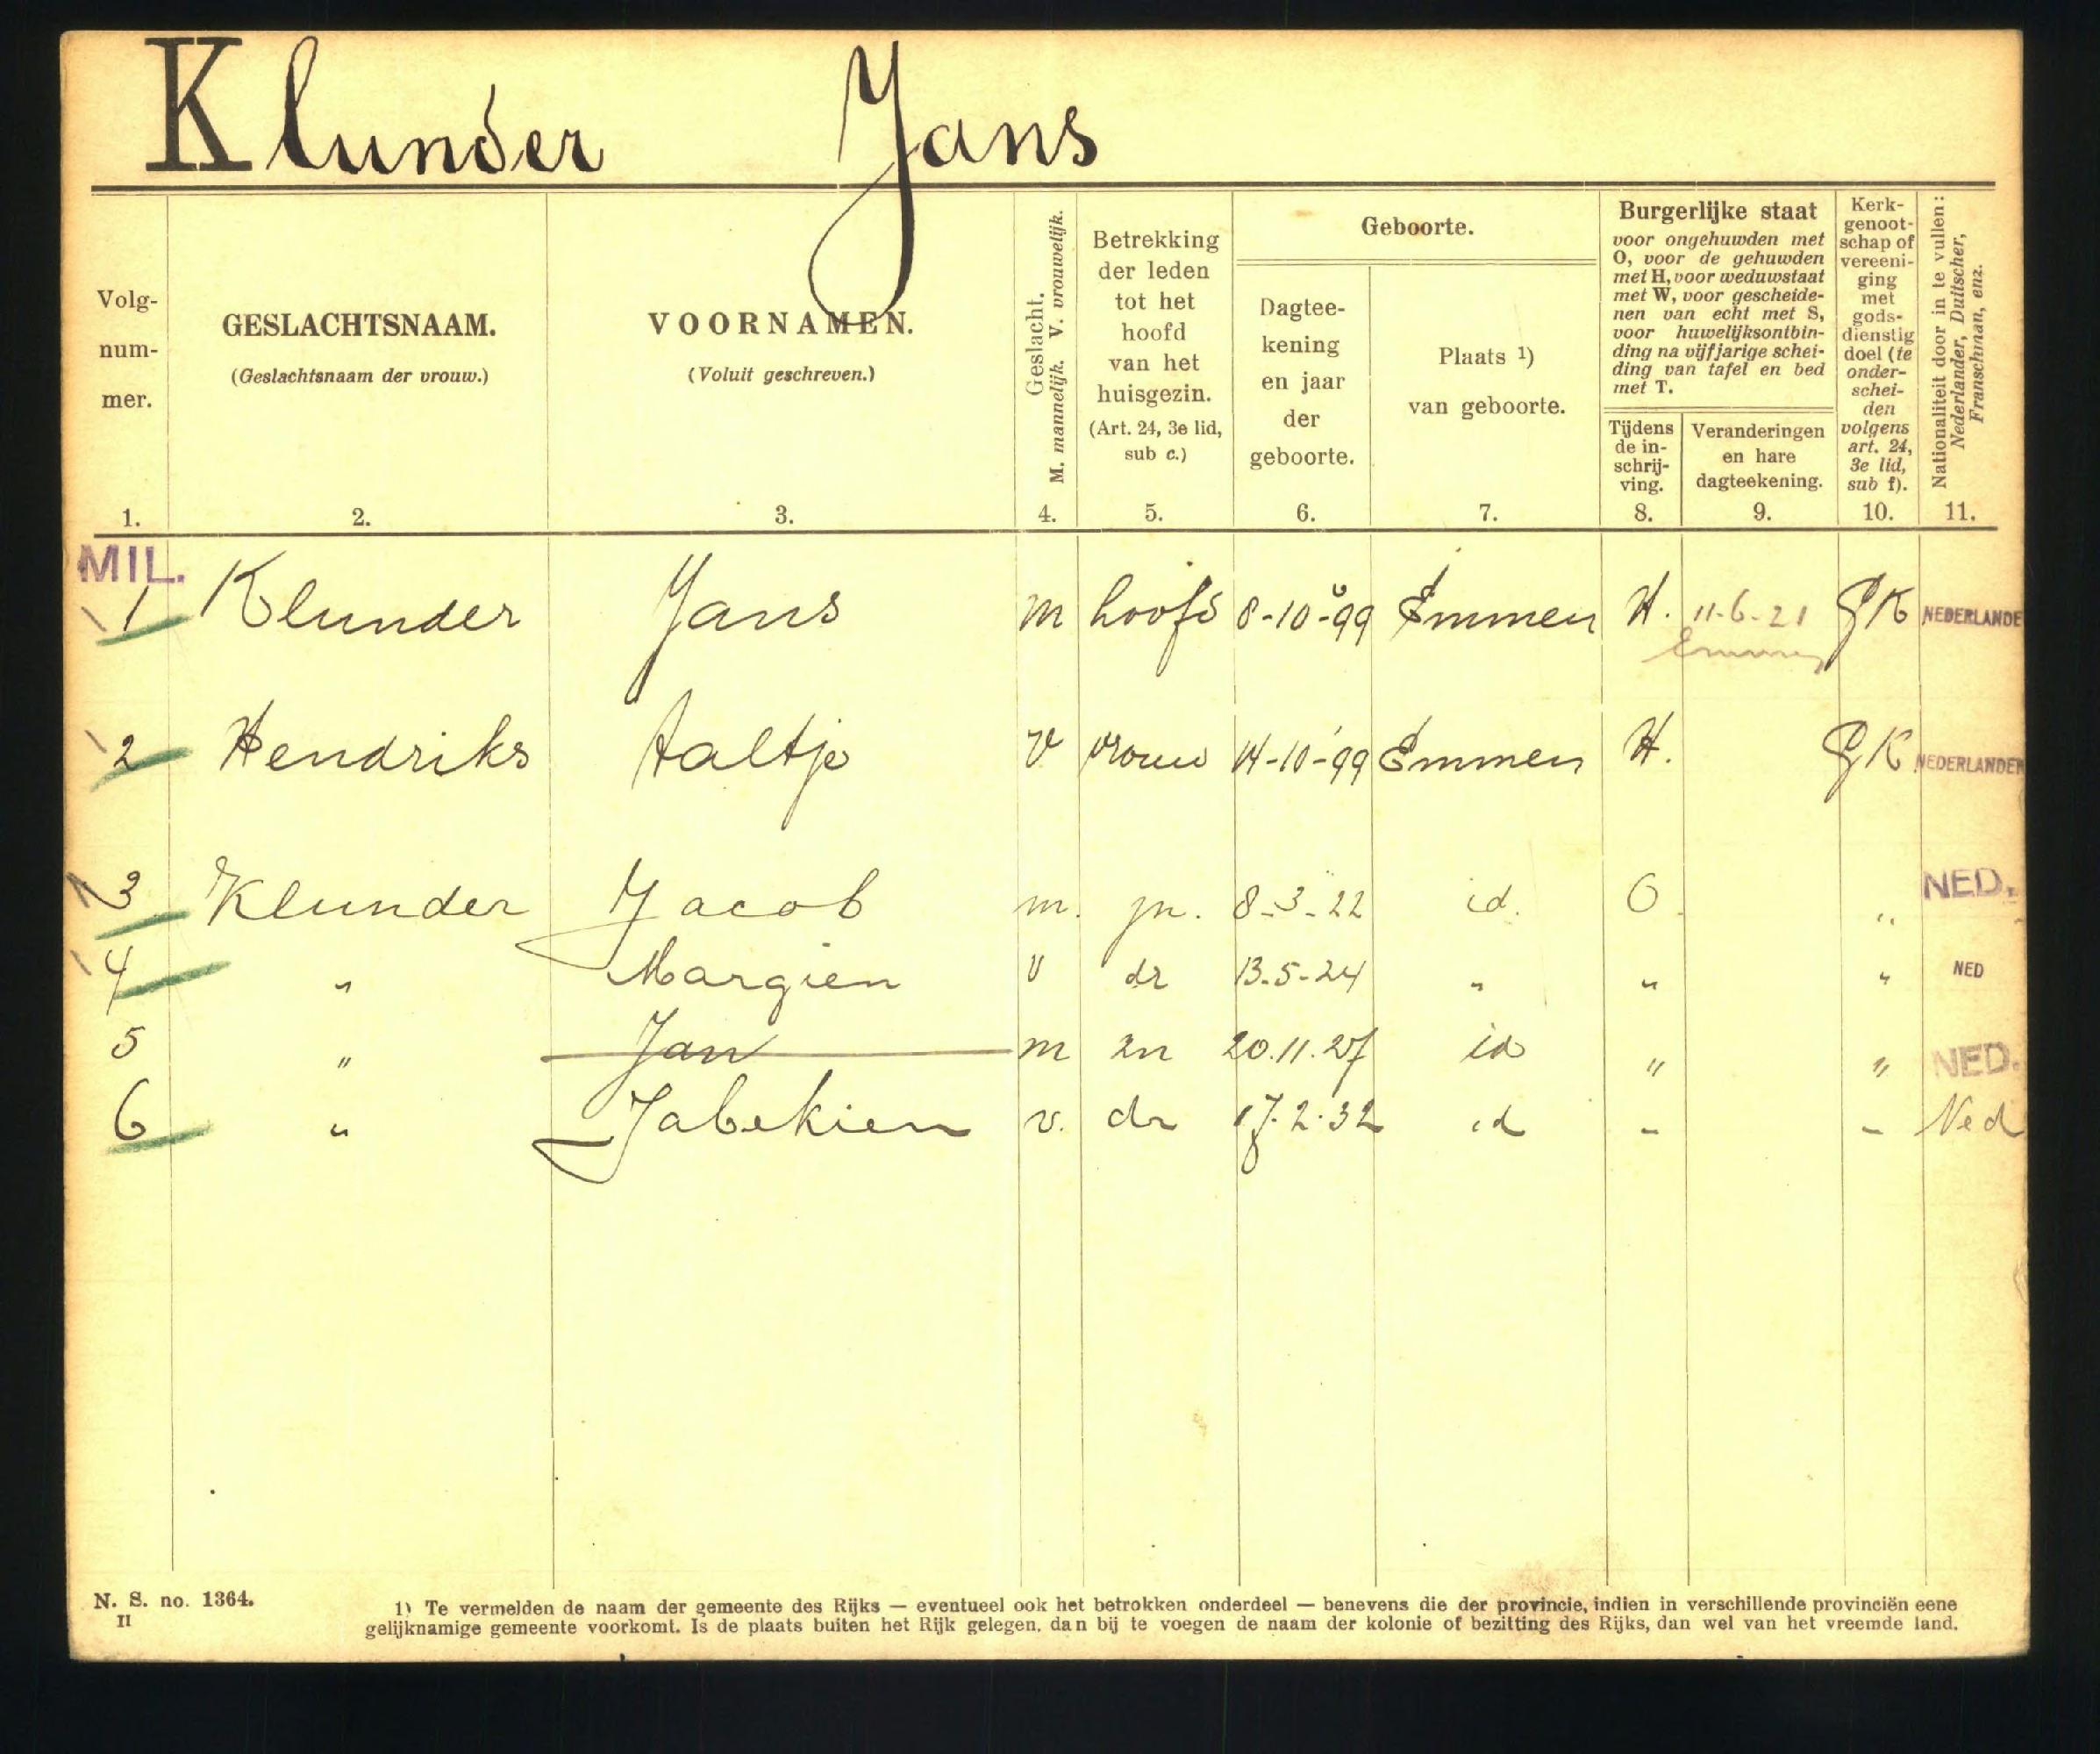 Klunder Jans
Volg-nummer. GESLACHTSNAAM. (Geslachtsnaam der vrouw.) VOORNAMEN. (Voluit geschreven.) Geslacht. M. mannelijk. V. vrouwelijk. Betrekking der leden tot het hoofd van het huisgezin. (Art. 24, 3e lid, sub c.) Geboorte. Dagtee-kening en jaar der geboorte. Plaats ¹) van geboorte.
Burgerlijke staat
voor ongehuwden met
O, voor de gehuwden
met H, voor weduwstaat
met W, voor gescheide-
nen van echt met S,
voor huwelijksontbin-
ding na vijfjarige schei-
ding van tafel en bed
met T.
Tijdens de in-schrij-ving. Veranderingen en hare dagteekening.
Kerk-genoot-schap of vereeni-ging met gods-dienstig doel (te onder-schei-den volgens art. 24, 3e lid, sub f).
Nationaliteit door in te vullen: Nederlander, Duitscher, Franschman, enz.
1. 2. 3. 4. 5. 6. 7. 8. 9. 10. 11.
MIL.
1 Klunder Jans m hoofd 8-10-99 Emmen H. 11-6-21 GK NEDERLANDE
Emmen
2 Hendriks Aaltje v vrouw 14-10-99 Emmen H. GK NEDERLANDER
3 Klunder Jacob m. zn. 8-3-22 id. O. „ NED.
4 „ Margien v dr 13-5-24 „ „ „ NED
5 „ Jan m zn 20.11.27 id „ „ NED.
6 „ Jabekien v. dr 17.2.32 id „ „ Ned
N. S. no. 1364.
II
1) Te vermelden de naam der gemeente des Rijks — eventueel ook het betrokken onderdeel — benevens die der provincie, indien in verschillende provinciën eene
gelijknamige gemeente voorkomt. Is de plaats buiten het Rijk gelegen, dan bij te voegen de naam der kolonie of bezitting des Rijks, dan wel van het vreemde land.